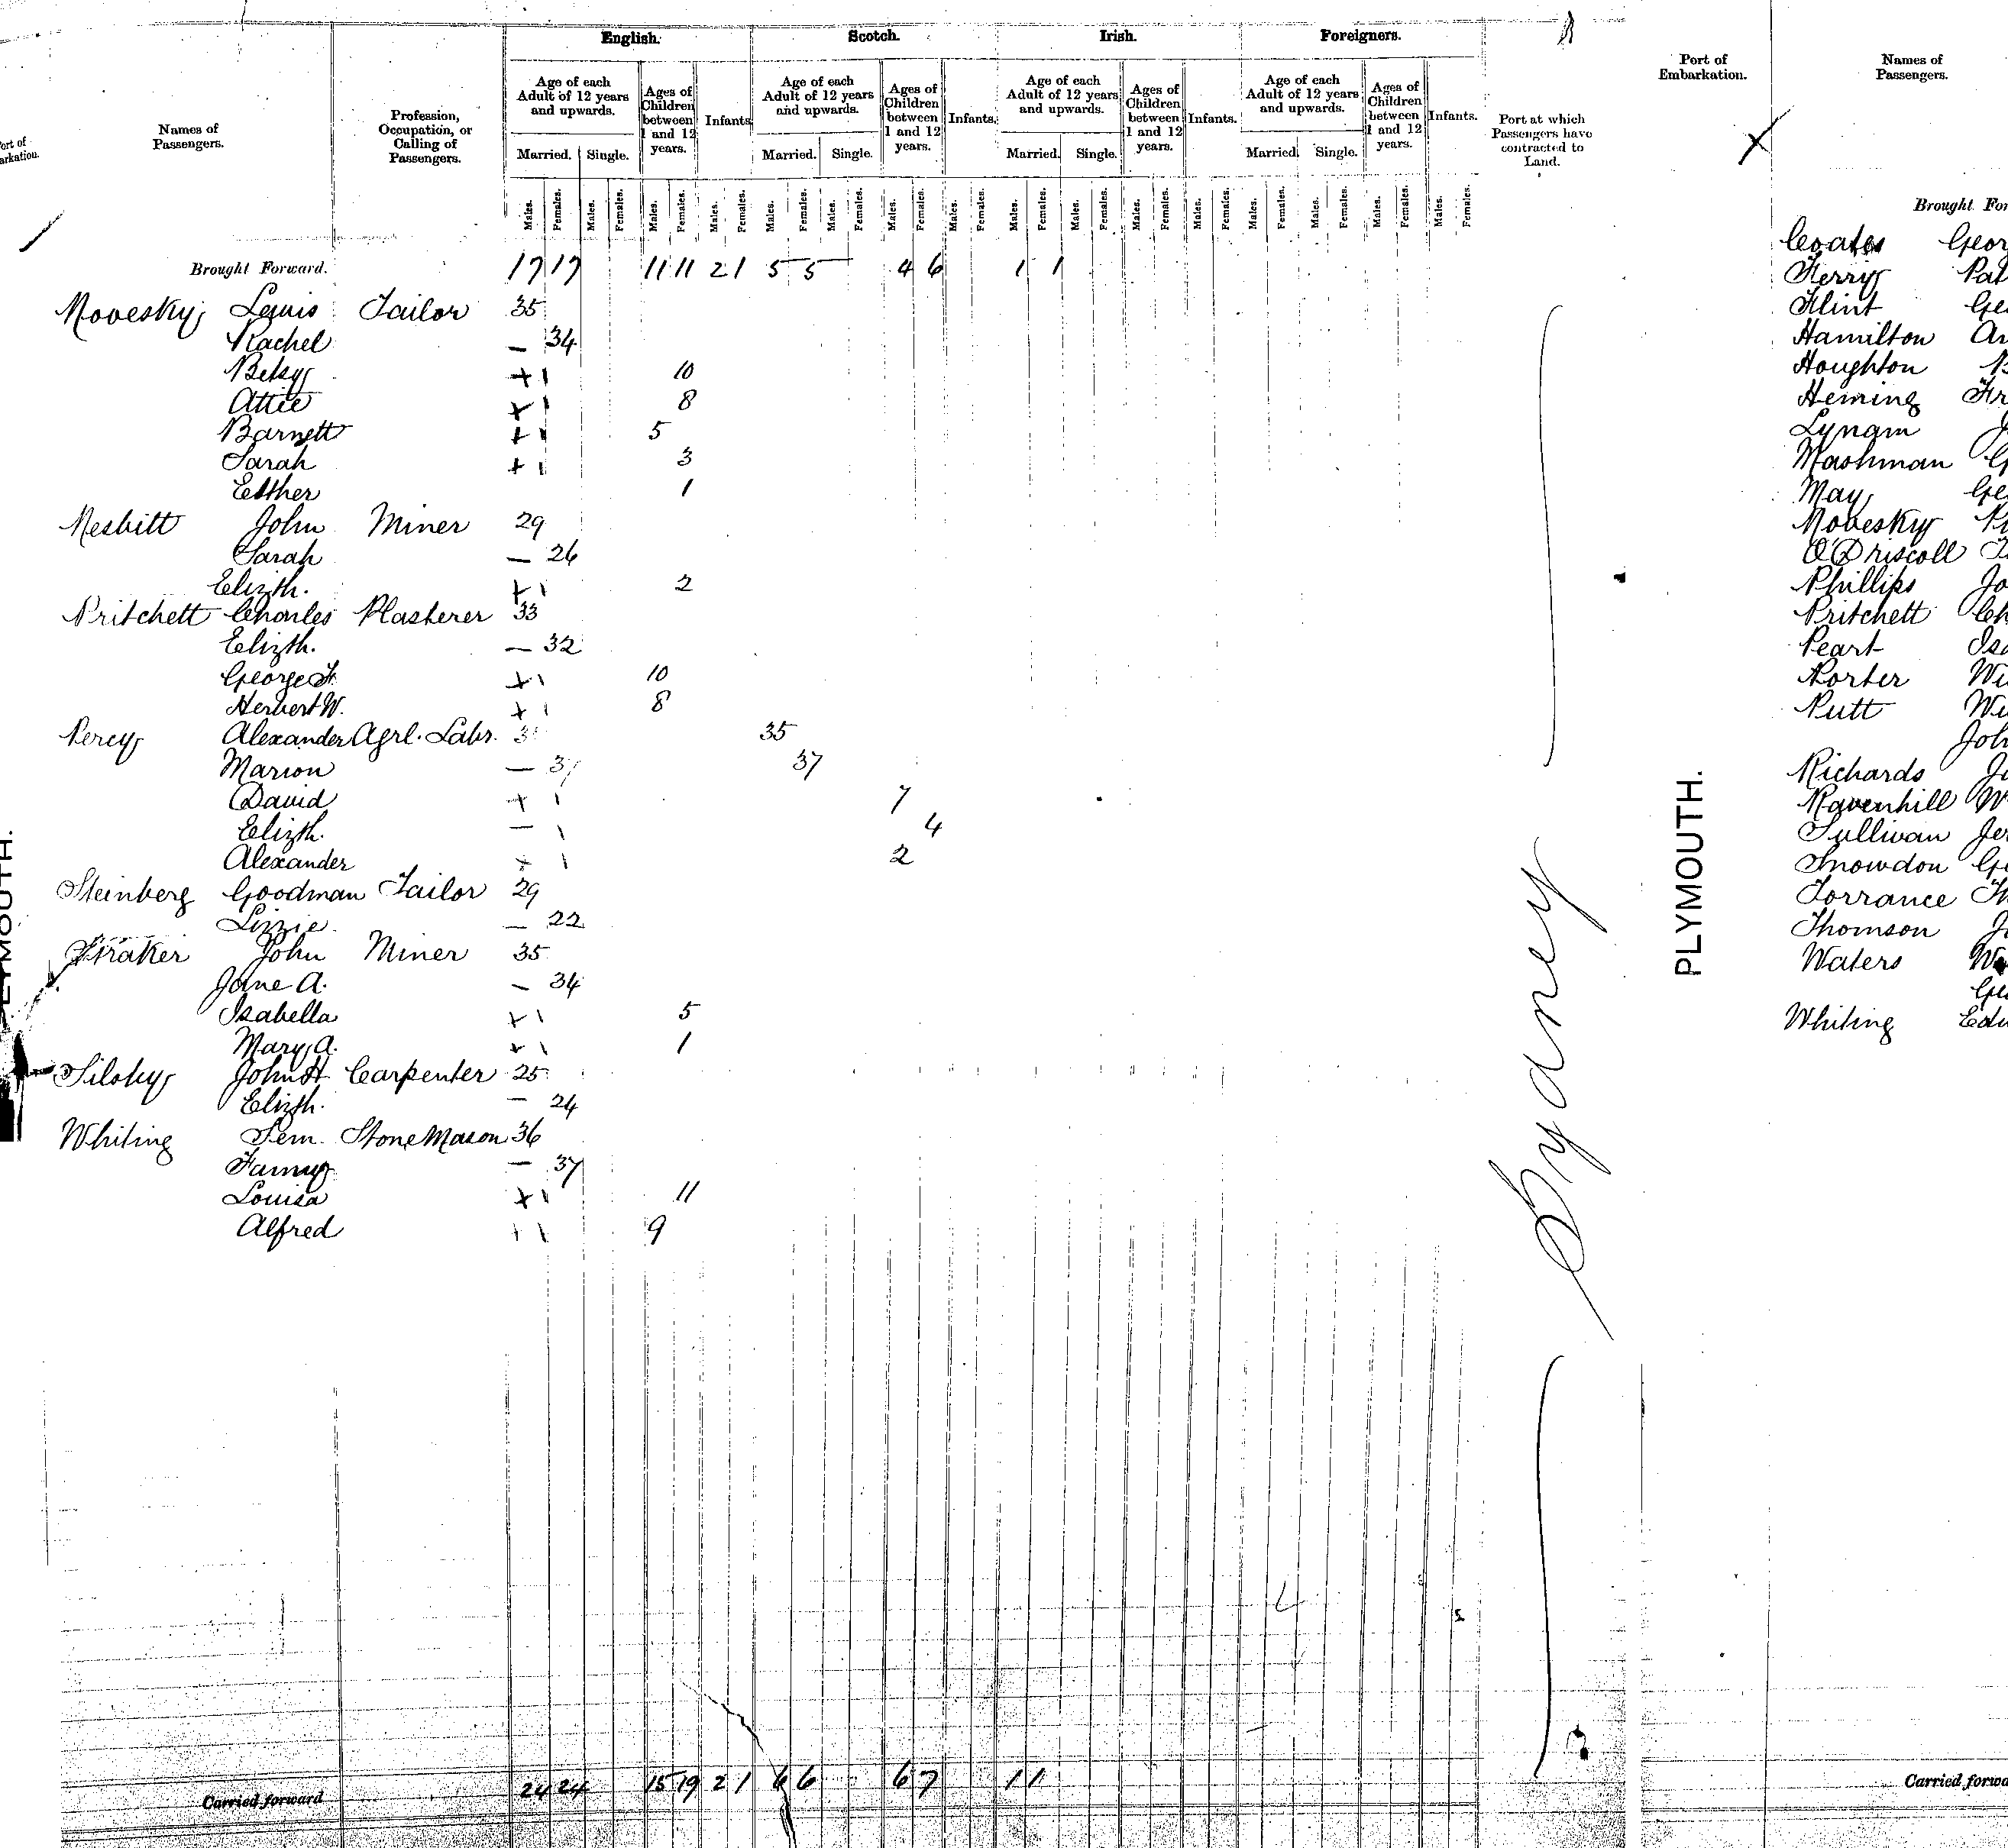 English. Scotch. Irish. Foreigners.
Port of Embarkation.
Names of Passengers.
Profession, Occupation, or Calling of Passengers.
Age of each Adult of 12 years and upwards. Ages of Children between 1 and 12 years. Infants.
Age of each Adult of 12 years and upwards. Ages of Children between 1 and 12 years. Infants.
Age of each Adult of 12 years and upwards. Ages of Children between 1 and 12 years. Infants.
Age of each Adult of 12 years and upwards. Ages of Children between 1 and 12 years. Infants.
Port at which Passengers have contracted to Land.
Married. Single. Married. Single. Married. Single. Married. Single.
Males. Females. Males. Females. Males. Females. Males. Females. Males. Females. Males. Females. Males. Females. Males. Females. Males. Females. Males. Females. Males. Females. Males. Females. Males. Females. Males. Females. Males. Females. Males. Females.
Brought Forward. 17 17 11 11 2 1 5 5 4 6 1 1
Movesky Louis Tailor 35
Rachel — 34
Betsy + 1 10
Attie + 1 8
Barnett + 1 5
Sarah + 1 3
Esther 1
Nesbitt John Miner 29
Sarah — 26
Elizth. + 1 2
Pritchett Charles Plasterer 33
Elizth. — 32
George F. + 1 10
Herbert W. + 1 8
Percy Alexander Agrl. Labr. 35
Marion — 37 37
David + 1 7
Elizth. — 1 4
Alexander + 1 2
Steinberg Goodman Tailor 29
Lizzie — 22
Straker John Miner 35
Jane A. — 34
Isabella + 1 5
Mary A. + 1 1
Silsby John H Carpenter 25
Elizth. — 24
Whiting Sem. Stone Mason 36
Fanny — 37
Louisa + 1 11
Alfred + 1 9
Carried forward 24 24 15 19 2 1 6 6 6 7 1 1
Sydney
PLYMOUTH.
Port of Embarkation.
Names of Passengers.
Brought
Coates
Ferry
Flint
Hamilton
Houghton
Heming
Lynam
Mashman
May
Movesky
O'Driscoll
Phillips
Pritchett
Peart
Porter
Putt
Richards
Ravenhill
Sullivan
Snowdon
Torrance
Thomson
Waters
Whiting
PLYMOUTH.
Carried